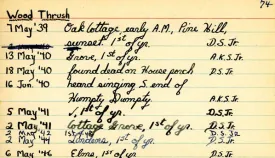 74-
Wood Thrush
7 May '39 Oak Cottage, early A.M., Pine Hill,
sunset. 1st of yr. D.S. Jr.
13 May '40 Grove, 1st of yr. A.K.S. Jr.
18 May '40 found dead on House porch D.S. Jr.
16 Jun '40 heard singing S. end of
Humpty Dumpty A.K.S. Jr.
5 May '41 ✓, 1st of yr. D.S. Jr.
2 May '41 Cottage Grove, 1st of yr. D.S. Jr.
2 May '42 1st of yr. D.S.
2 May '44 1st of yr. D.S. Jr.
6 May '46 1st of yr. D.S. Jr.